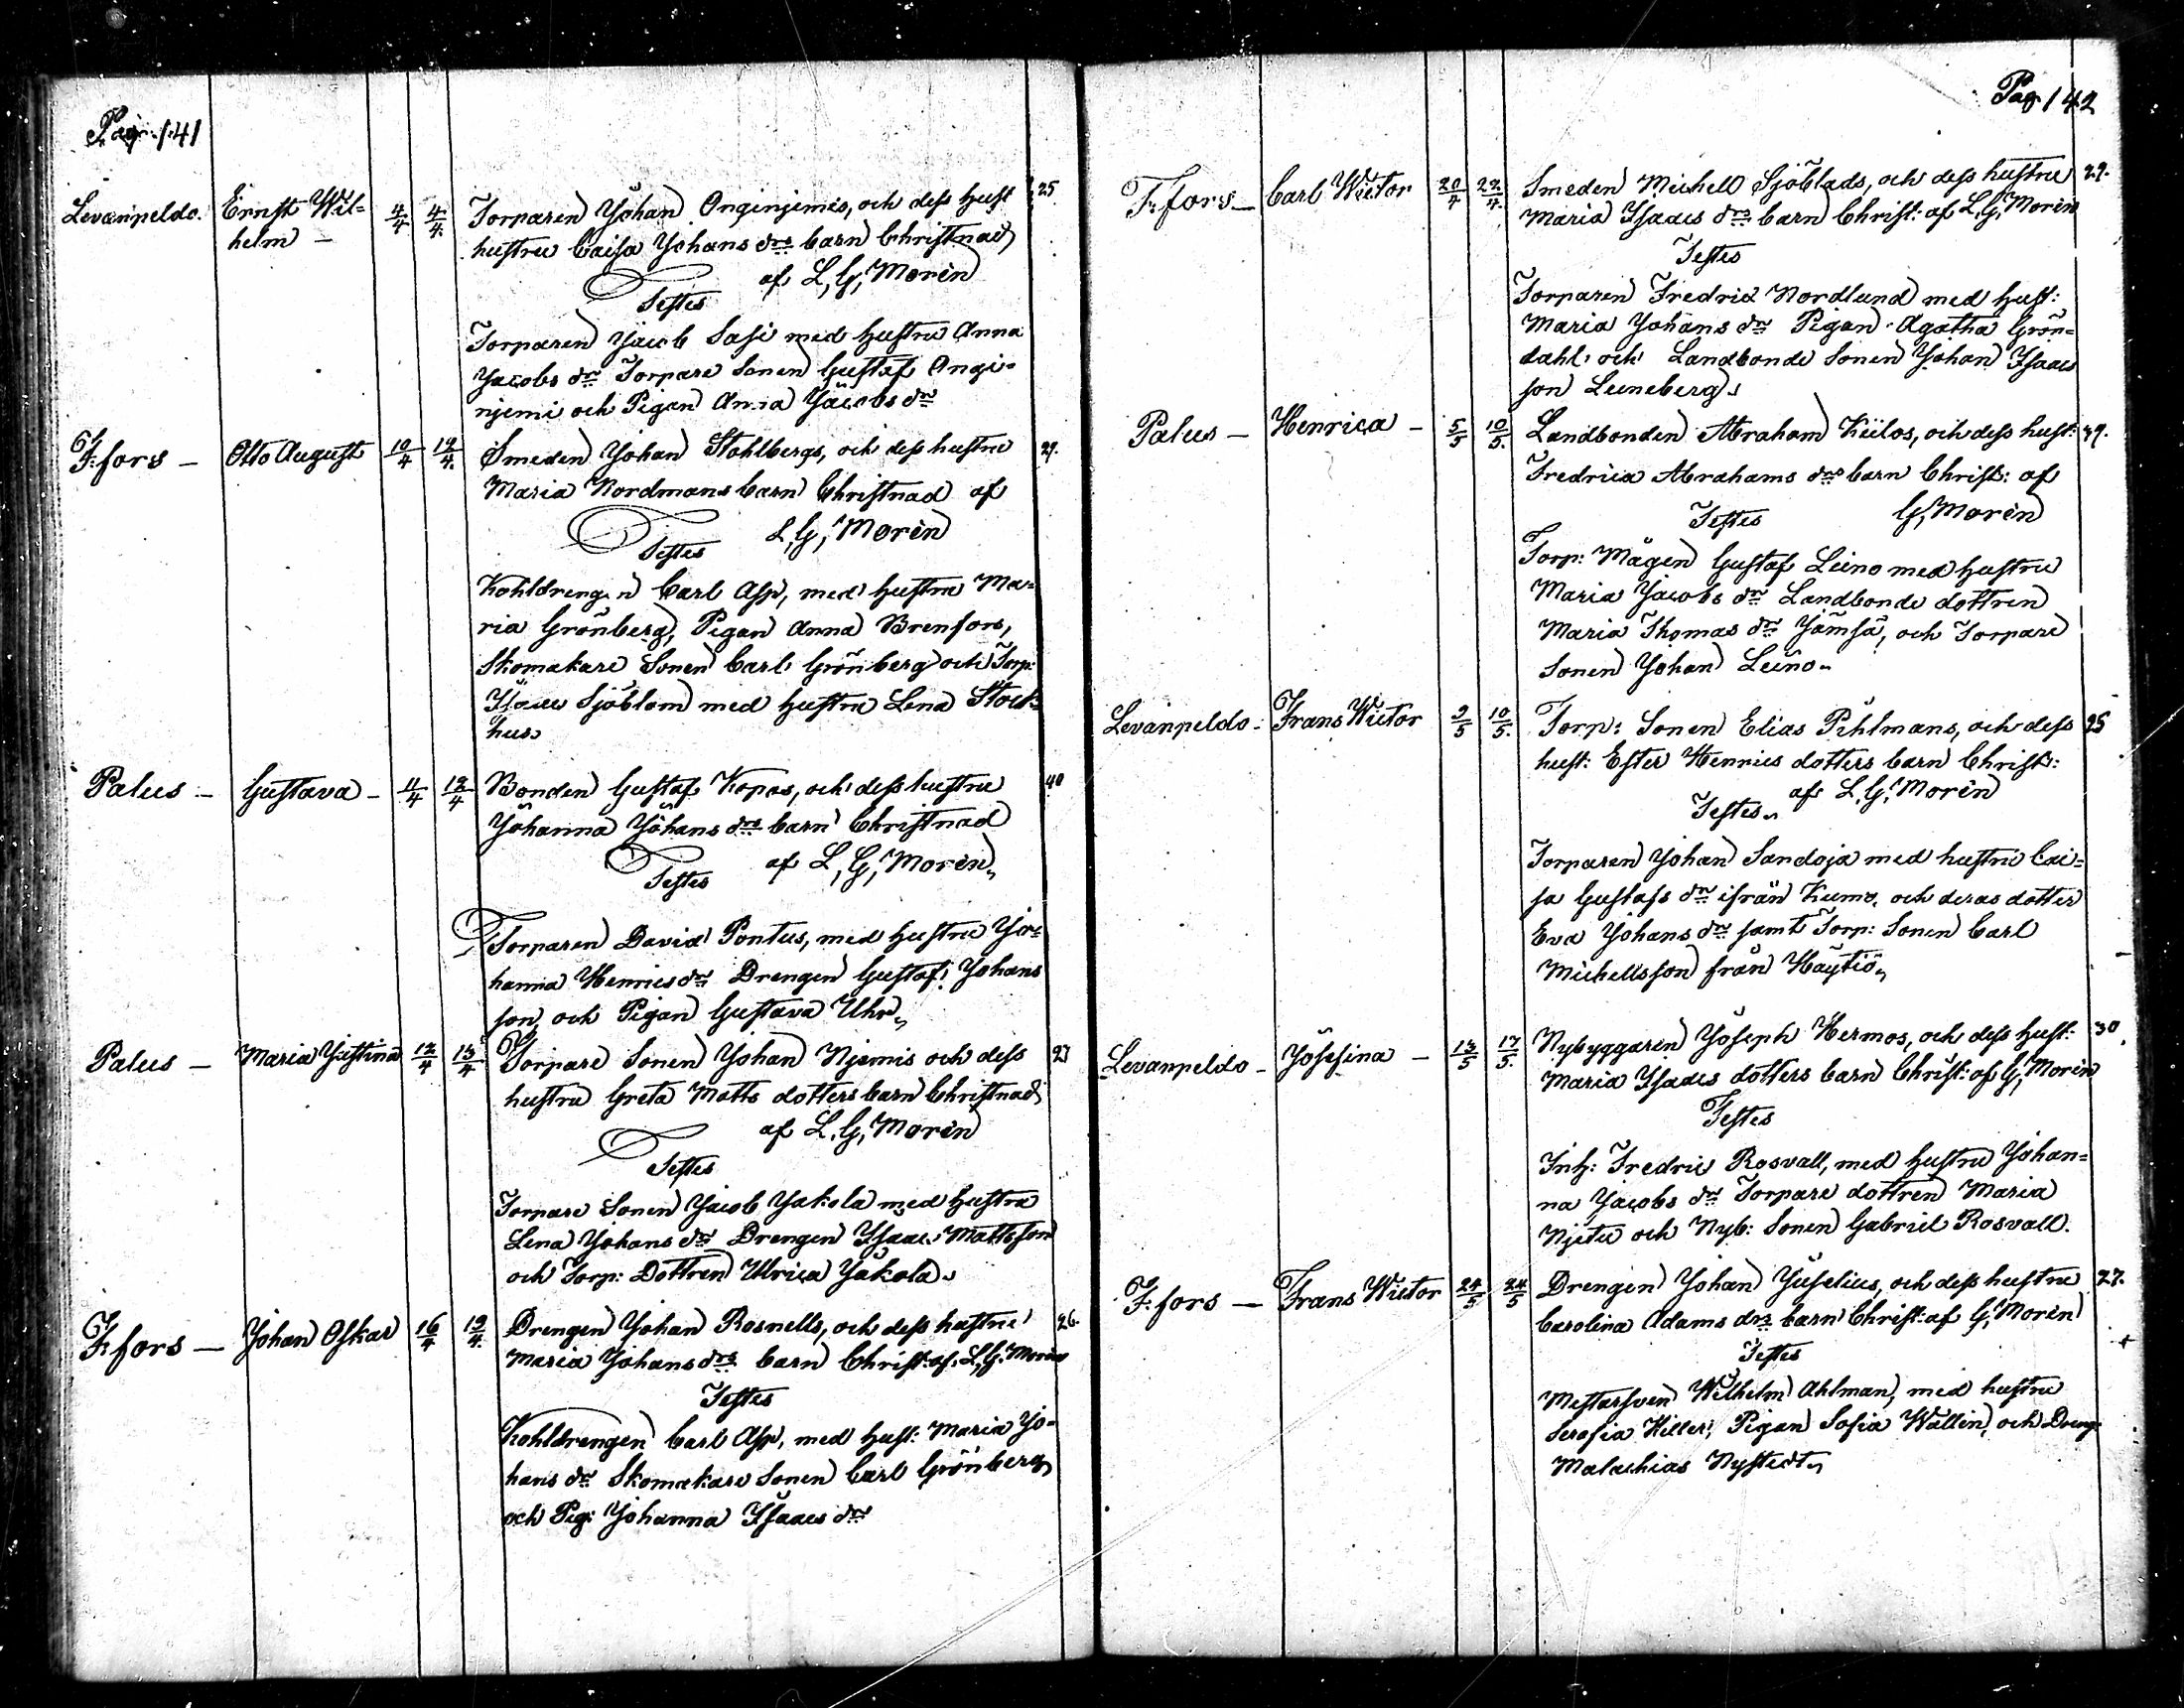 Pag. 141
Levanpeldo. Ernst Wil= 4/4 4/4. Torparen Johan Onginjemis, och dess Hust 25
helm — hustru Caisa Johans drs barn Christnad
af L, G, Morén
Testes
Torparen Jacob Sasi med Hustru Anna
Jacobs dr Torpare Sonen Gustaf Ongi-
njemi och Pigan Anna Jacobs dr
F:fors — Otto August 10/4 12/4. Smeden Johan Stohlbergs, och dess hustru 29.
Maria Nordmans barn Christnad af
Testes L, G, Morén
Kohldrengen Carl Asp, med Hustru Ma=
ria Grönberg, Pigan Anna Brenfors,
Skomakare Sonen Carl Grönberg och Torp:
Isaac Sjöblom med Hustru Lena Stock=
hus.
Palus — Gustava — 11/4 12/4 Bonden Gustaf Kopas, och dess hustru 40
Johanna Johans drs barn Christnad
Testes af L, G, Morén
Torparen David Pontus, med Hustru Jo=
hanna Henrics dr Drengen Gustaf Johans
son, och Pigan Gustava Uhr
Palus — Maria Justina 12/4 13/4 Torpare Sonen Johan Njemis och dess 23
hustru Greta Matts dotters barn Christnad
af L. G, Morén
Testes
Torpare Sonen Jacob Jakola med Hustru
Lena Johans dr Drengen Isaac Mattsson
och Torp: Dottren Ulrica Jakola.
F:fors — Johan Oskar 16/4 19/4. Drengen Johan Rosnells, och dess hustru 26.
Maria Johans drs barn Christ: af L, G. Morén
Testes
Kohldrengen Carl Asp, med Hust: Maria Jo=
hans dr Skomakare Sonen Carl Grönberg
och Pig: Johanna Isaacs dr
Pag. 142
F:fors — Carl Wictor 20/4 22/4. Smeden Michell Sjöblads, och dess hustru 29.
Maria Isaacs drs barn Christ: af L, G, Morén
Testes
Torparen Fredric Nordlund med Hust:
Maria Johans dr Pigan Agatha Grön=
dahl och Landbonde Sonen Johan Isaacs
son Leineberg.
Palus — Henrica — 5/5 10/5. Landbonden Abraham Kulos, och dess hust: 39.
Fredrica Abrahams drs barn Christ: af
Testes G, Morén
Torp: Mågen Gustaf Leino med Hustru
Maria Jacobs dr Landbonde dottren
Maria Thomas dr Jämsä, och Torpare
Sonen Johan Leino.
Levanpeldo. Frans Wictor 9/5 10/5. Torp: Sonen Elias Pihlmans, och dess 25
hust: Ester Henrics dotters barn Christ:
Testes. af L. G, Morén
Torparen Johan Sandoja med hustru Cai=
sa Gustafs dr ifrån Kumo, och deras dotter
Eva Johans dr samt Torp: Sonen Carl
Michellsson från Haytiö.
Levanpeldo — Josefina — 13/5 17/5. Nybyggaren Joseph Hermos, och dess Hust: 30.
Maria Isaacs dotters barn Christ: af G, Morén
Testes
Inh: Fredric Rosvall, med Hustru Johan=
na Jacobs dr Torpare dottren Maria
Njetu och Nyb: Sonen Gabriel Rosvall.
F:fors — Frans Wictor 24/5 24/5 Drengen Johan Juselius, och dess hustru 27.
Carolina Adams drs barn Christ: af G, Morén
Testes +
Mestarsven Wilhelm Ahlman, med hustru
Serafia Hiller, Pigan Sofia Wallin, och Dreng:
Malachias Nystedt.